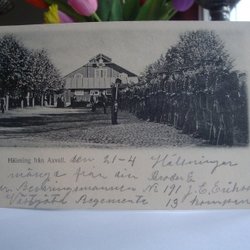 Hälsning från Axvall. den 21-4 Helsningar
många från din Broder E
Beväringsmannen No 191 J. E. Erikson
Vestgöta Regemente 13 kompani